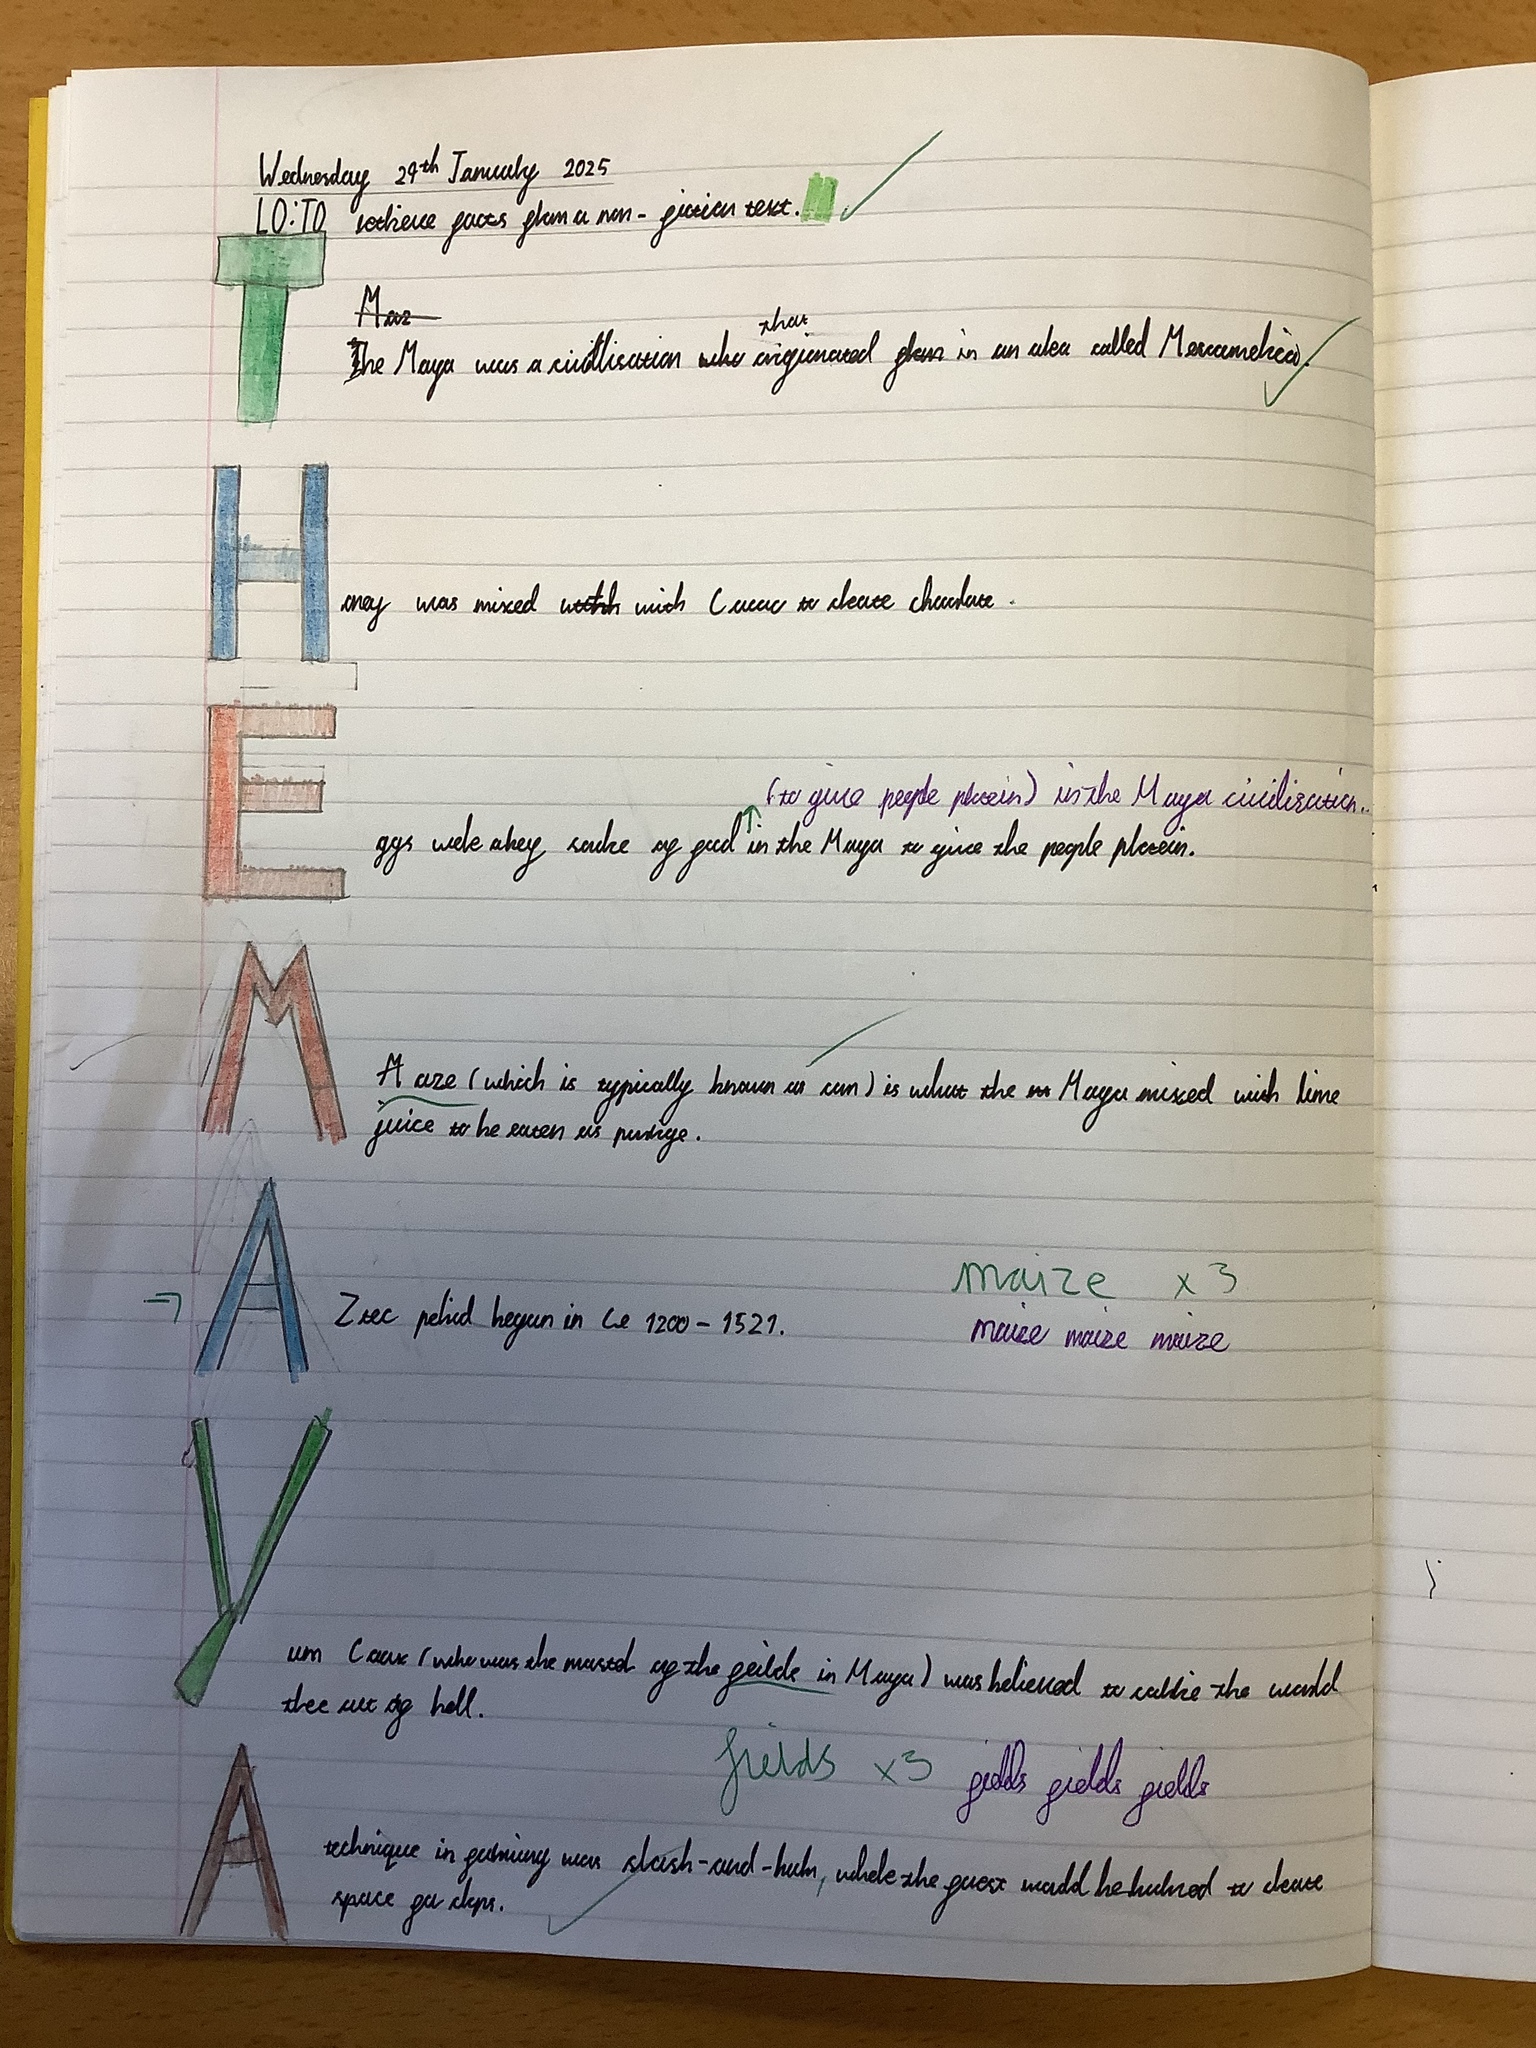 Wednesday 29th January 2025
LO: To retrieve facts from a non-fiction text.
T
Maz
that
The Maya was a civillisation who origionated from in an area called Mesoamerica.
H
oney was mixed with with Cacao to create chocolate.
E
(to give people protein) in the Maya civilisation.
ggs were a key source of food in the Maya to give the people protein.
M
Aaze (which is typically known as corn) is what the m Maya mixed with lime
juice to be eaten as porrige.
A
maize x3
Ztec period began in Ce 1200-1521.
maize maize maize
Y
um Caax (who was the master of the feilds in Maya) was believed to carrie the world
tree out of hell.
fields x3 fields fields fields
A
technique in farming was slash-and-burn, where the forest would be burned to create
space for crops.